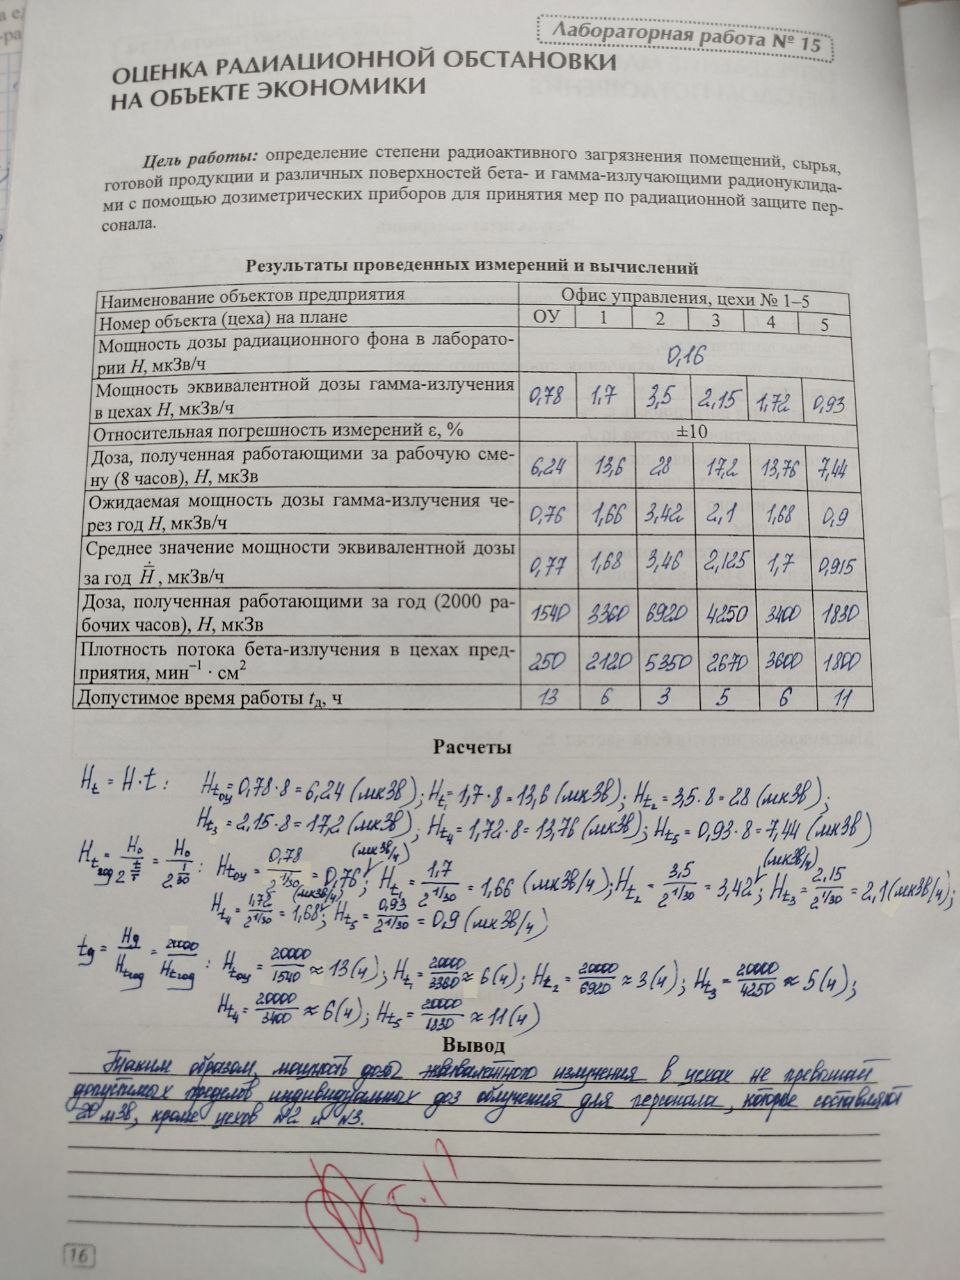 Лабораторная работа № 15
ОЦЕНКА РАДИАЦИОННОЙ ОБСТАНОВКИ
НА ОБЪЕКТЕ ЭКОНОМИКИ
Цель работы: определение степени радиоактивного загрязнения помещений, сырья,
готовой продукции и различных поверхностей бета- и гамма-излучающими радионуклида-
ми с помощью дозиметрических приборов для принятия мер по радиационной защите пер-
сонала.
Результаты проведенных измерений и вычислений
Наименование объектов предприятия Офис управления, цехи № 1–5
Номер объекта (цеха) на плане ОУ 1 2 3 4 5
Мощность дозы радиационного фона в лаборато-
рии H, мкЗв/ч 0,16
Мощность эквивалентной дозы гамма-излучения
в цехах H, мкЗв/ч 0,78 1,7 3,5 2,15 1,72 0,93
Относительная погрешность измерений ε, % ±10
Доза, полученная работающими за рабочую сме-
ну (8 часов), H, мкЗв 6,24 13,6 28 17,2 13,76 7,44
Ожидаемая мощность дозы гамма-излучения че-
рез год H, мкЗв/ч 0,76 1,66 3,42 2,1 1,68 0,9
Среднее значение мощности эквивалентной дозы
за год H̄̇, мкЗв/ч 0,77 1,68 3,46 2,125 1,7 0,915
Доза, полученная работающими за год (2000 ра-
бочих часов), H, мкЗв 1540 3360 6920 4250 3400 1830
Плотность потока бета-излучения в цехах пред-
приятия, мин⁻¹ · см² 250 2120 5350 2670 3600 1800
Допустимое время работы tд, ч 13 6 3 5 6 11
Расчеты
Ht = H·t : Htоу = 0,78·8 = 6,24 (мкЗв); Ht1 = 1,7·8 = 13,6 (мкЗв); Ht2 = 3,5·8 = 28 (мкЗв);
Ht3 = 2,15·8 = 17,2 (мкЗв); Ht4 = 1,72·8 = 13,76 (мкЗв); Ht5 = 0,93·8 = 7,44 (мкЗв)
Htгод = H₀/2^(t/T) = H₀/2^(1/30) : Htоу = 0,78/2^(1/30) = 0,76 (мкЗв/ч); Ht1 = 1,7/2^(1/30) = 1,66 (мкЗв/ч); Ht2 = 3,5/2^(1/30) = 3,42 (мкЗв/ч); Ht3 = 2,15/2^(1/30) = 2,1 (мкЗв/ч);
Ht4 = 1,72/2^(1/30) = 1,68 (мкЗв/ч); Ht5 = 0,93/2^(1/30) = 0,9 (мкЗв/ч)
tд = Hд/Htгод = 20000/Htгод : Htоу = 20000/1540 ≈ 13 (ч); Ht1 = 20000/3360 ≈ 6 (ч); Ht2 = 20000/6920 ≈ 3 (ч); Ht3 = 20000/4250 ≈ 5 (ч);
Ht4 = 20000/3400 ≈ 6 (ч); Ht5 = 20000/1830 ≈ 11 (ч)
Вывод
Таким образом, мощность дозы эквивалентного излучения в цехах не превышает
допустимых пределов индивидуальных доз облучения для персонала, которое составляют
20 мЗв, кроме цехов №2 и №3.
16